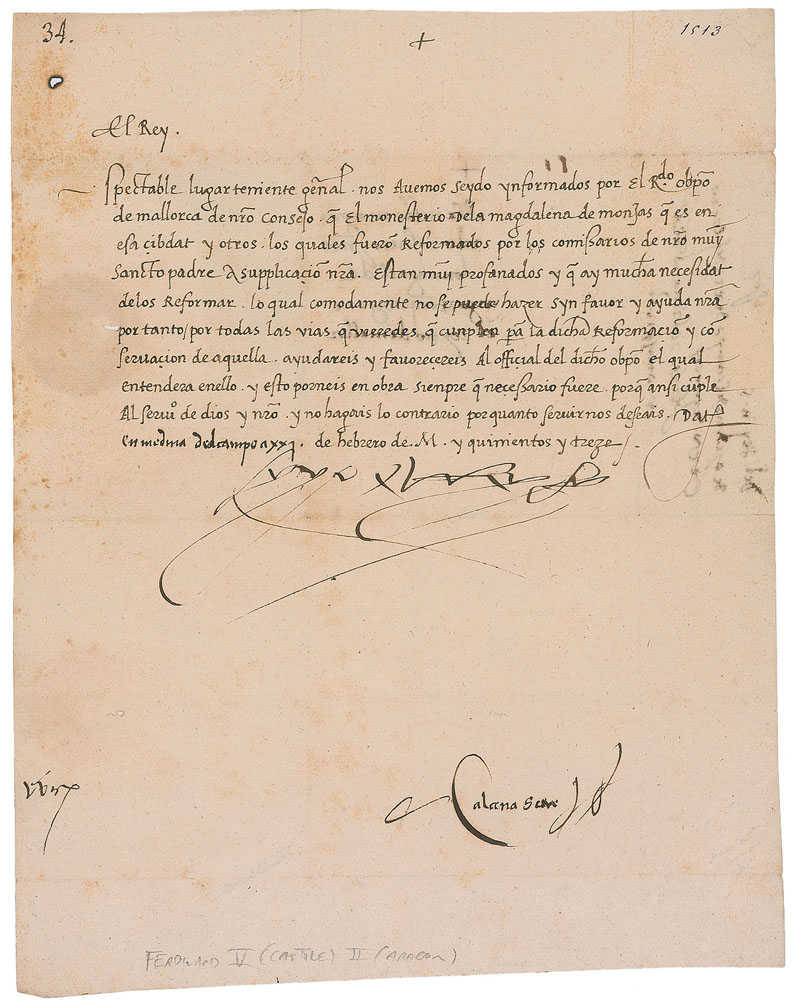 34.
+
1513
El Rey.
Spectable lugarteniente gen̄al. nos Avemos seydo ynformados por El R.do obpō
de mallorca de nr̄o Consejo. q̄ El monesterio dela magdalena de monjas q̄ es en
esa çibdat y otros. los quales fuerō Reformados por los comissarios de nr̄o muy
Sancto padre A supplicaciō nr̄a. Estan muy profanados y q̄ ay mucha neçesidat
delos Reformar. lo qual comodamente no se puede hazer syn favor y ayuda nr̄a
por tanto / por todas las vias q̄ vieredes q̄ cunplen pā la dicha Reformaciō y cō
servaçion de aquella. ayudareis y favoreçereis Al official del dicho obpō el qual
entendera enello. y esto porneis en obra sienpre q̄ necessario fuere. porq̄ ansi cunple
Al servi.o de dios y nr̄o. y no hagais lo contrario por quanto servirnos deseais. Dat
en medina del campo a xxj. de hebrero de. M. y quinientos y treze.
Calcena Secr
FERDINAND V (CASTILE) II (ARAGON)